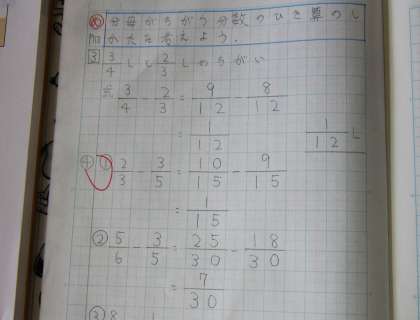 め 分母がちがう分数のひき算のし
かたを考えよう.
3 3/4Lと2/3Lのちがい
式 3/4 - 2/3 = 9/12 - 8/12
= 1/12
1/12 L
④ ① 2/3 - 3/5 = 10/15 - 9/15
= 1/15
② 5/6 - 3/5 = 25/30 - 18/30
= 7/30
③ 8